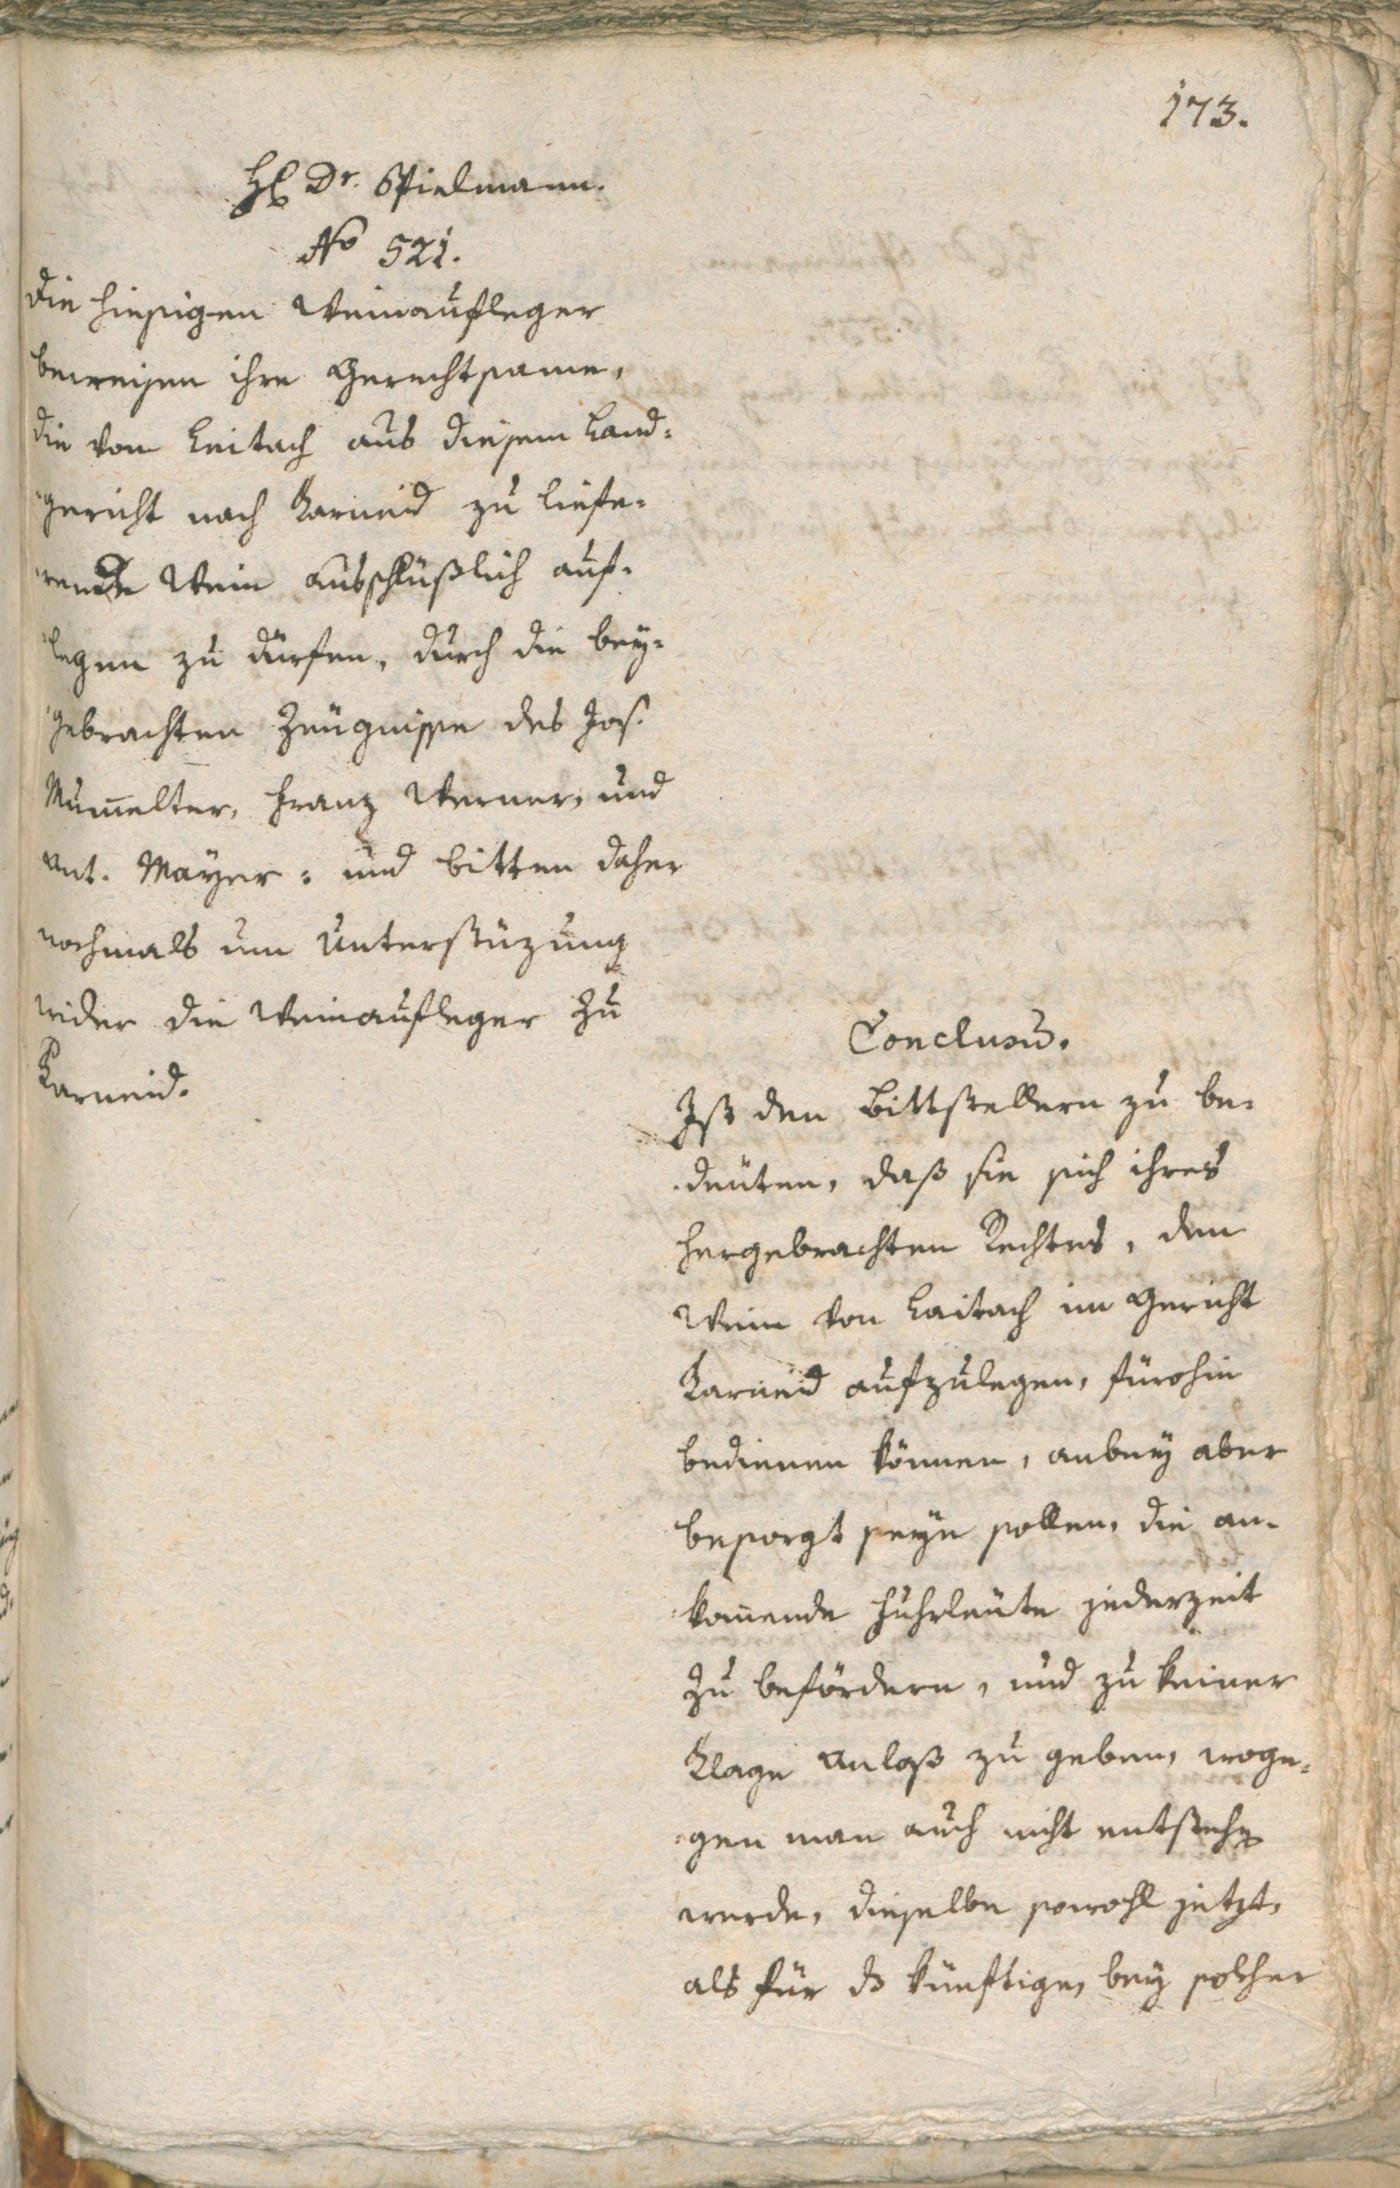 173.
H. Dr. Spielmann.
No 521.
Die hiesigen Weinaufleger
beweisen ihre Gerechtsame,
die von Leitach aus diesem Land-
gericht nach Karneid zu liefe-
rende Wein ausschlüßlich auf-
legen zu dürfen, durch die bey-
gebrachten Zeügnisse des Jos.
Mum̅elter, Franz Werner, und
Ant. Mayer: und bitten daher
nochmals um Unterstüzung
wider die Weinaufleger zu
Karneid.
Conclusu̅.
Ist den Bittstellern zu be-
deüten, daß sie sich ihres
hergebrachten Rechtes, den
Wein von Laitach im Gericht
Karneid aufzulegen, fürohin
bedienen können, anbey aber
besorgt seyn sollen, die an-
kom̅ende Fuhrleüte jederzeit
zu befördern, und zu keiner
Klage Anlaß zu geben, woge-
gen man auch nicht entstehen
werde, dieselbe sowohl jetzt,
als für das künftige, bey solcher